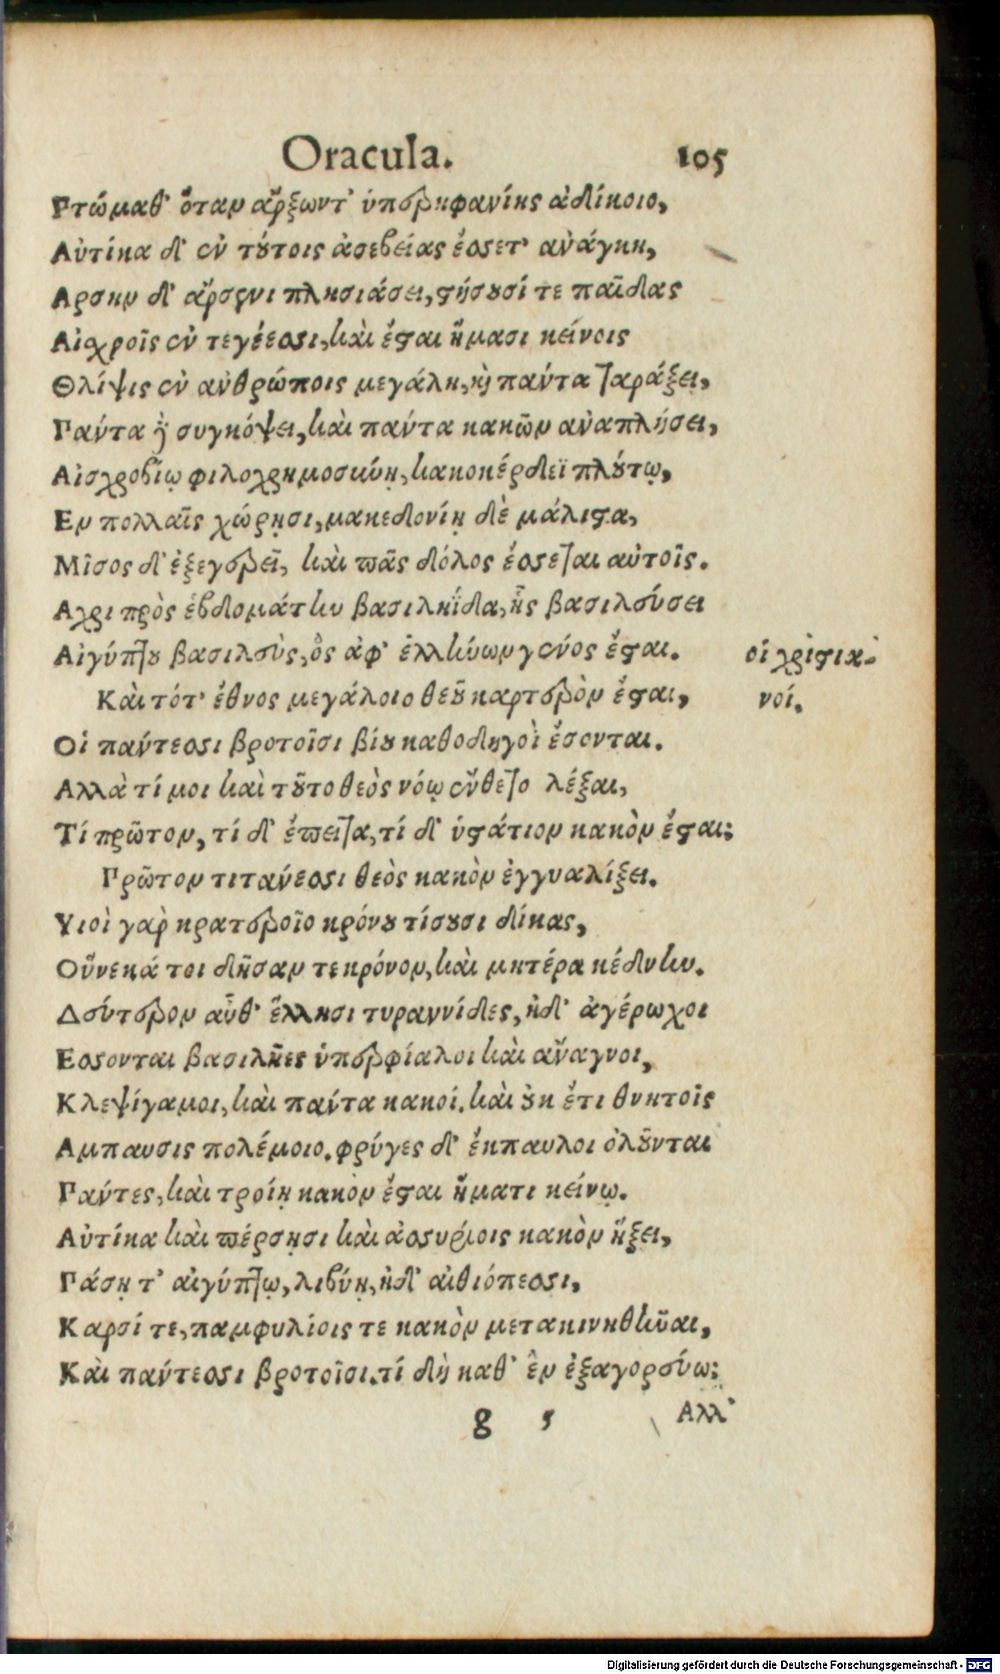 Oracula. 105
Πτώμαθ' ὅταν ἄρξωντ' ὑπερηφανίης ἀδίκοιο,
Αὐτίκα δ' ἐν τούτοις ἀσεβείας ἔσσετ' ἀνάγκη,
Αρσην δ' ἄρσενι πλησιάσει, στήσουσί τε παῖδας
Αἰχροῖς ἐν τεγέεσσι, καὶ ἔσται ἤμασι κείνοις
Θλίψις ἐν ἀνθρώποις μεγάλη, καὶ πάντα ταράξει,
Πάντα δὲ συγκόψει, καὶ πάντα κακῶν ἀναπλήσει,
Αἰσχροβίῳ φιλοχρημοσύνῃ, κακοκέρδεϊ πλούτῳ,
Εν πολλαῖς χώρῃσι, μακεδονίῃ δὲ μάλιστα,
Μῖσος δ' ἐξεγερεῖ, καὶ πᾶς δόλος ἔσσεται αὐτοῖς.
Αχρι πρὸς ἑβδομάτην βασιληΐδα, ἧς βασιλεύσει
Αἰγύπτου βασιλεὺς, ὃς ἀφ' ἑλλήνων γένος ἔσται.
οἱ χριστια-
Καὶ τότ' ἔθνος μεγάλοιο θεοῦ καρτερὸν ἔσται,
νοί.
Οἱ πάντεσσι βροτοῖσι βίου καθοδηγοὶ ἔσονται.
Αλλὰ τί μοι καὶ τοῦτο θεὸς νόῳ ἔνθετο λέξαι,
Τί πρῶτον, τί δ' ἔπειτα, τί δ' ὑστάτιον κακὸν ἔσται;
Πρῶτον τιτάνεσσι θεὸς κακὸν ἐγγυαλίξει.
Υιοὶ γὰρ κρατεροῖο κρόνου τίσουσι δίκας,
Οὕνεκά τοι δῆσαν τε κρόνον, καὶ μητέρα κέδνην.
Δεύτερον αὖθ' ἕλλησι τυραννίδες, ἠδ' ἀγέρωχοι
Εσσονται βασιλῆες ὑπερφίαλοι καὶ ἄναγνοι,
Κλεψίγαμοι, καὶ πάντα κακοί. καὶ οὐκ ἔτι θνητοῖς
Αμπαυσις πολέμοιο. φρύγες δ' ἔκπαυλοι ὀλοῦνται
Πάντες, καὶ τροίῃ κακὸν ἔσται ἤματι κείνῳ.
Αὐτίκα καὶ πέρσῃσι καὶ ἀσσυρίοις κακὸν ἥξει,
Πάσῃ τ' αἰγύπτῳ, λιβύῃ, ἠδ' αἰθιόπεσσι,
Καρσί τε, παμφυλίοις τε κακὸν μετακινηθῆναι,
Καὶ πάντεσσι βροτοῖσι. τί δὴ καθ' ἓν ἐξαγορεύω;
g 5 Αλλ'
Digitalisierung gefördert durch die Deutsche Forschungsgemeinschaft - DFG